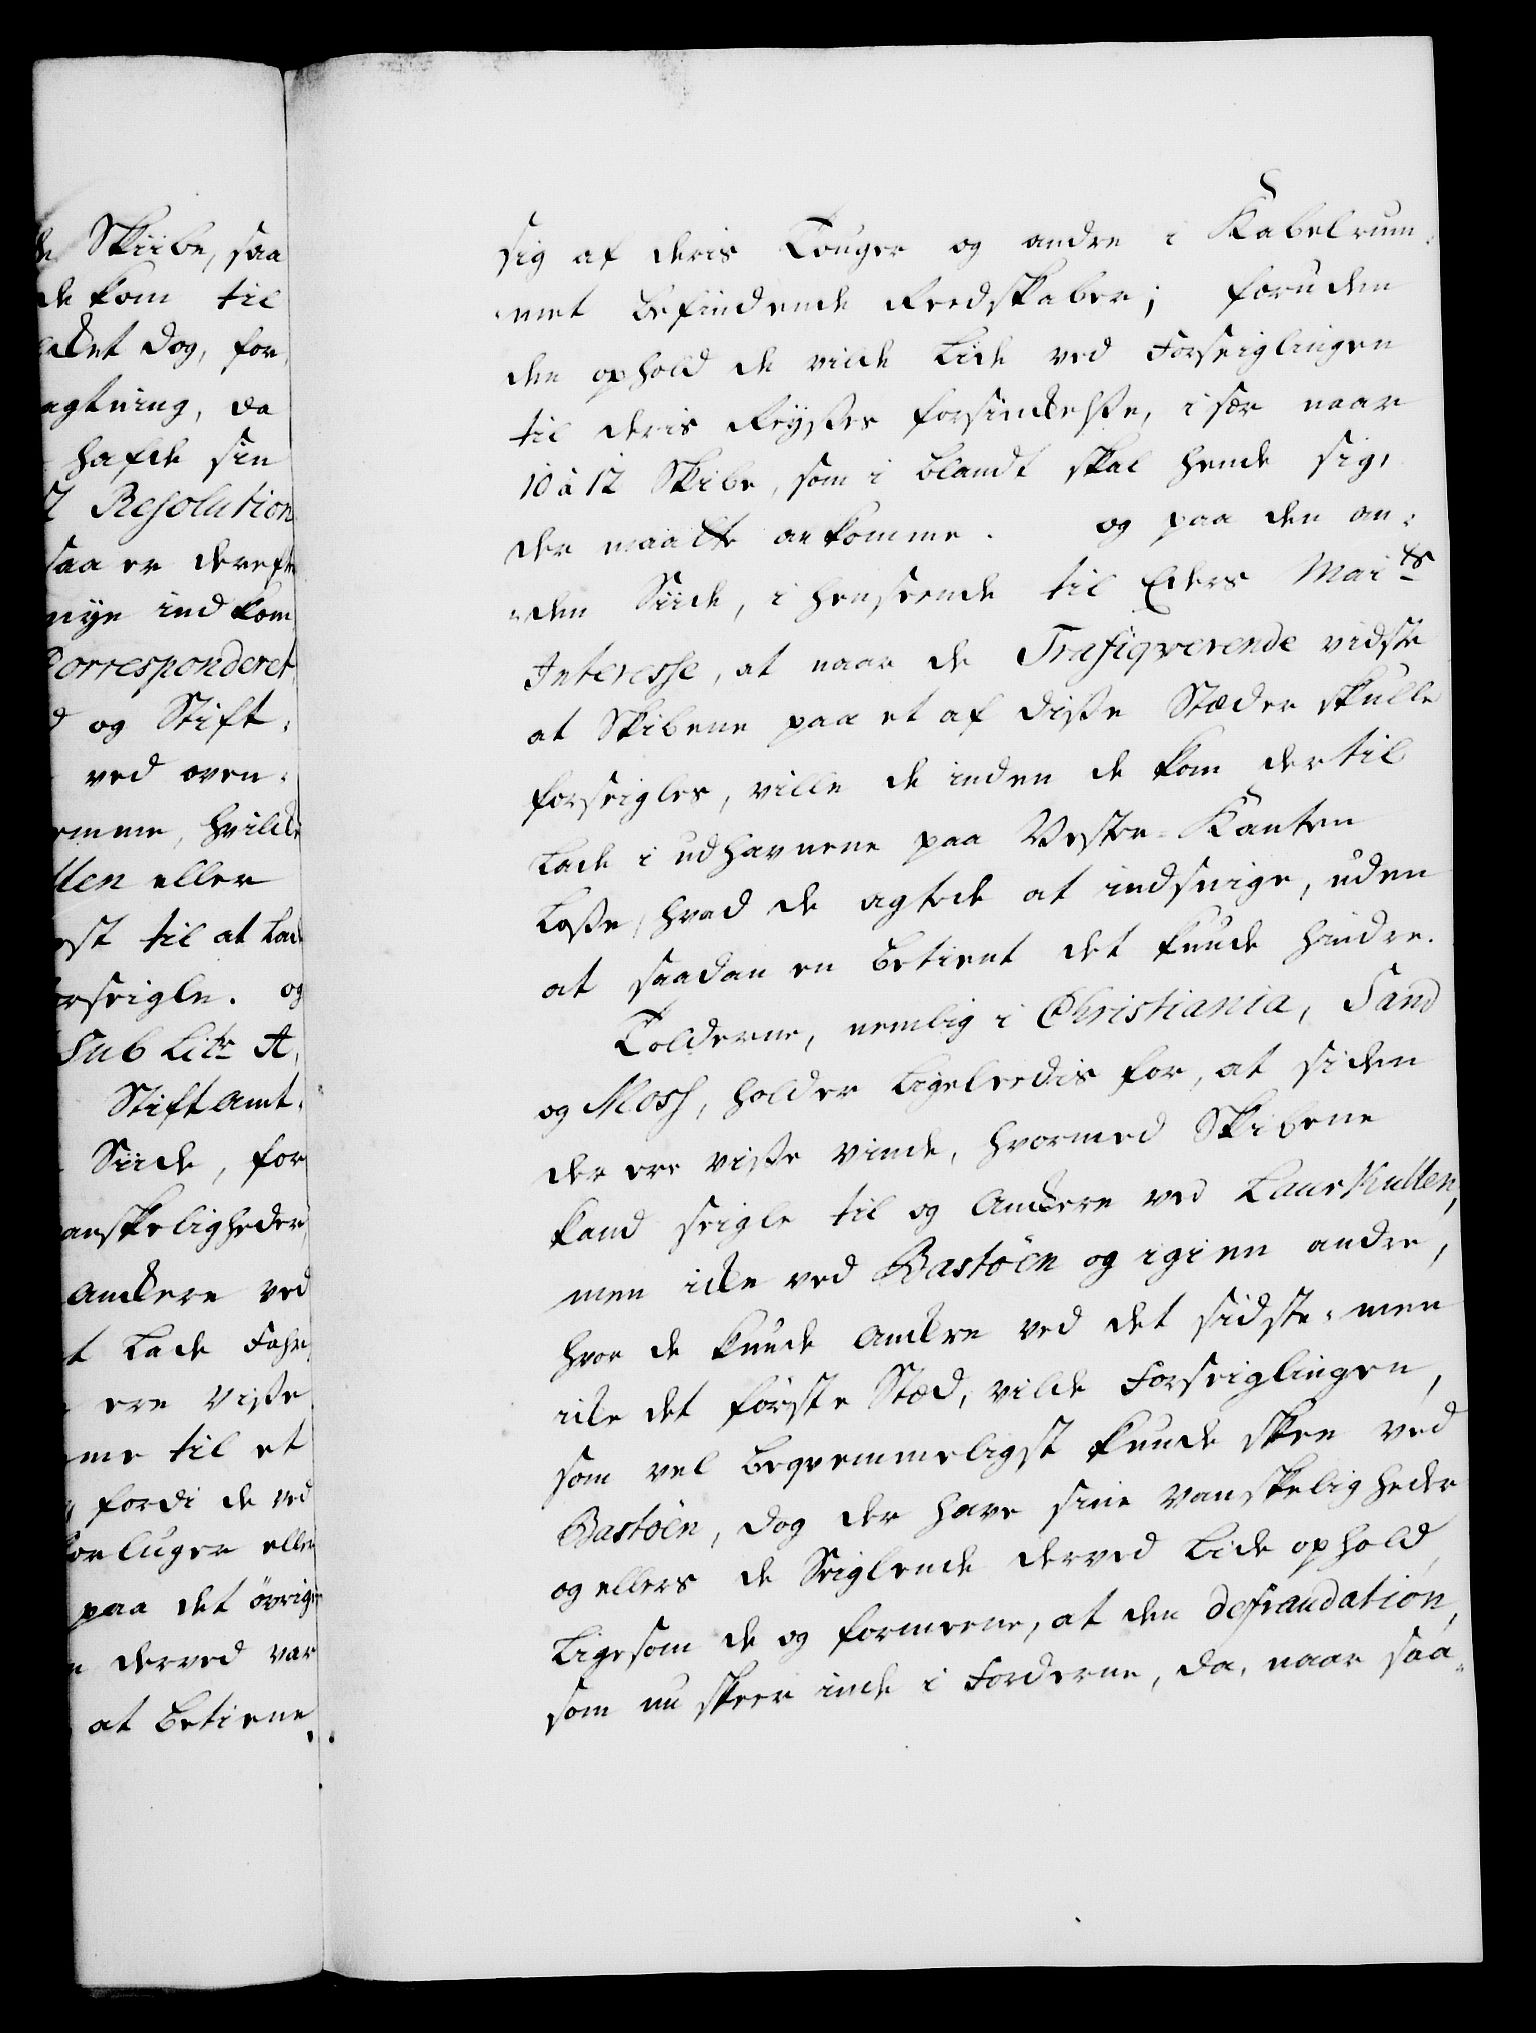 de Skiibe, saa
de kom til
cket dog, for
agtning, da
hafde sin
Resolution
saa er dereft
nye ind kom
Corresponderet
og Stift:
ved oven:
emme, hvilcke
llen eller
ost til at lade
orseigle. og
Sub Litr A,
Stiftamt:
Siide, for
anskeligheder,
anckere ved
t lade Fahr
ere visse
me til et
fordi de ved
or luger eller
paa det øvrige
derved var
at betiene
sig af deris Touger og andre i Kabelrum:
met befindende Reedskaber; foruden
den ophold de vilde lide ved Forseiglingen
til deris Reyses forsinckelse, i sær naar
10 à 12 Skibe, som i blandt skal hende sig,
der maatte ankomme. og paa den an:
den Siide, i henseende til Eders Maits
Interesse, at naar de Trafiqverende vidste
at Skibene paa et af disse Stæder skulle
forseigles, ville de inden de kom dertil
lade i udhavnene paa Vester-Kanten
losse, hvad de agtede at indsnige, uden
at saadan en betient det kunde hindre.
Tolderne, nemlig i Christiania, Sand
og Moss, holder ligeleedis for, at siden
der ere visse vinde, hvormed Skibene
kand seigle til og Anckere ved Laurkullen,
men icke ved Bastöen og igien andre,
hvor de kunde anckre ved det sidste men
icke det förste Stæd, vilde Forseiglingen,
som vel beqvemmeligst kunde skee ved
Bastöen, dog der have sine vanskeligheder
og ellers de Seiglende derved lide ophold,
ligesom de og formeene, at den defraudation,
som nu skeer inde i Forderne, da, naar saa: